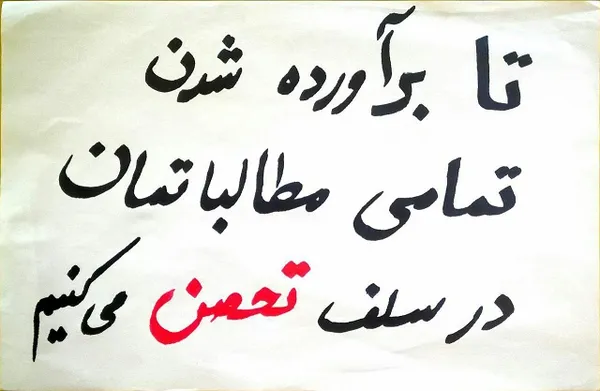 تا برآورده شدن
تمامی مطالباتمان
در سلف تحصن می‌کنیم